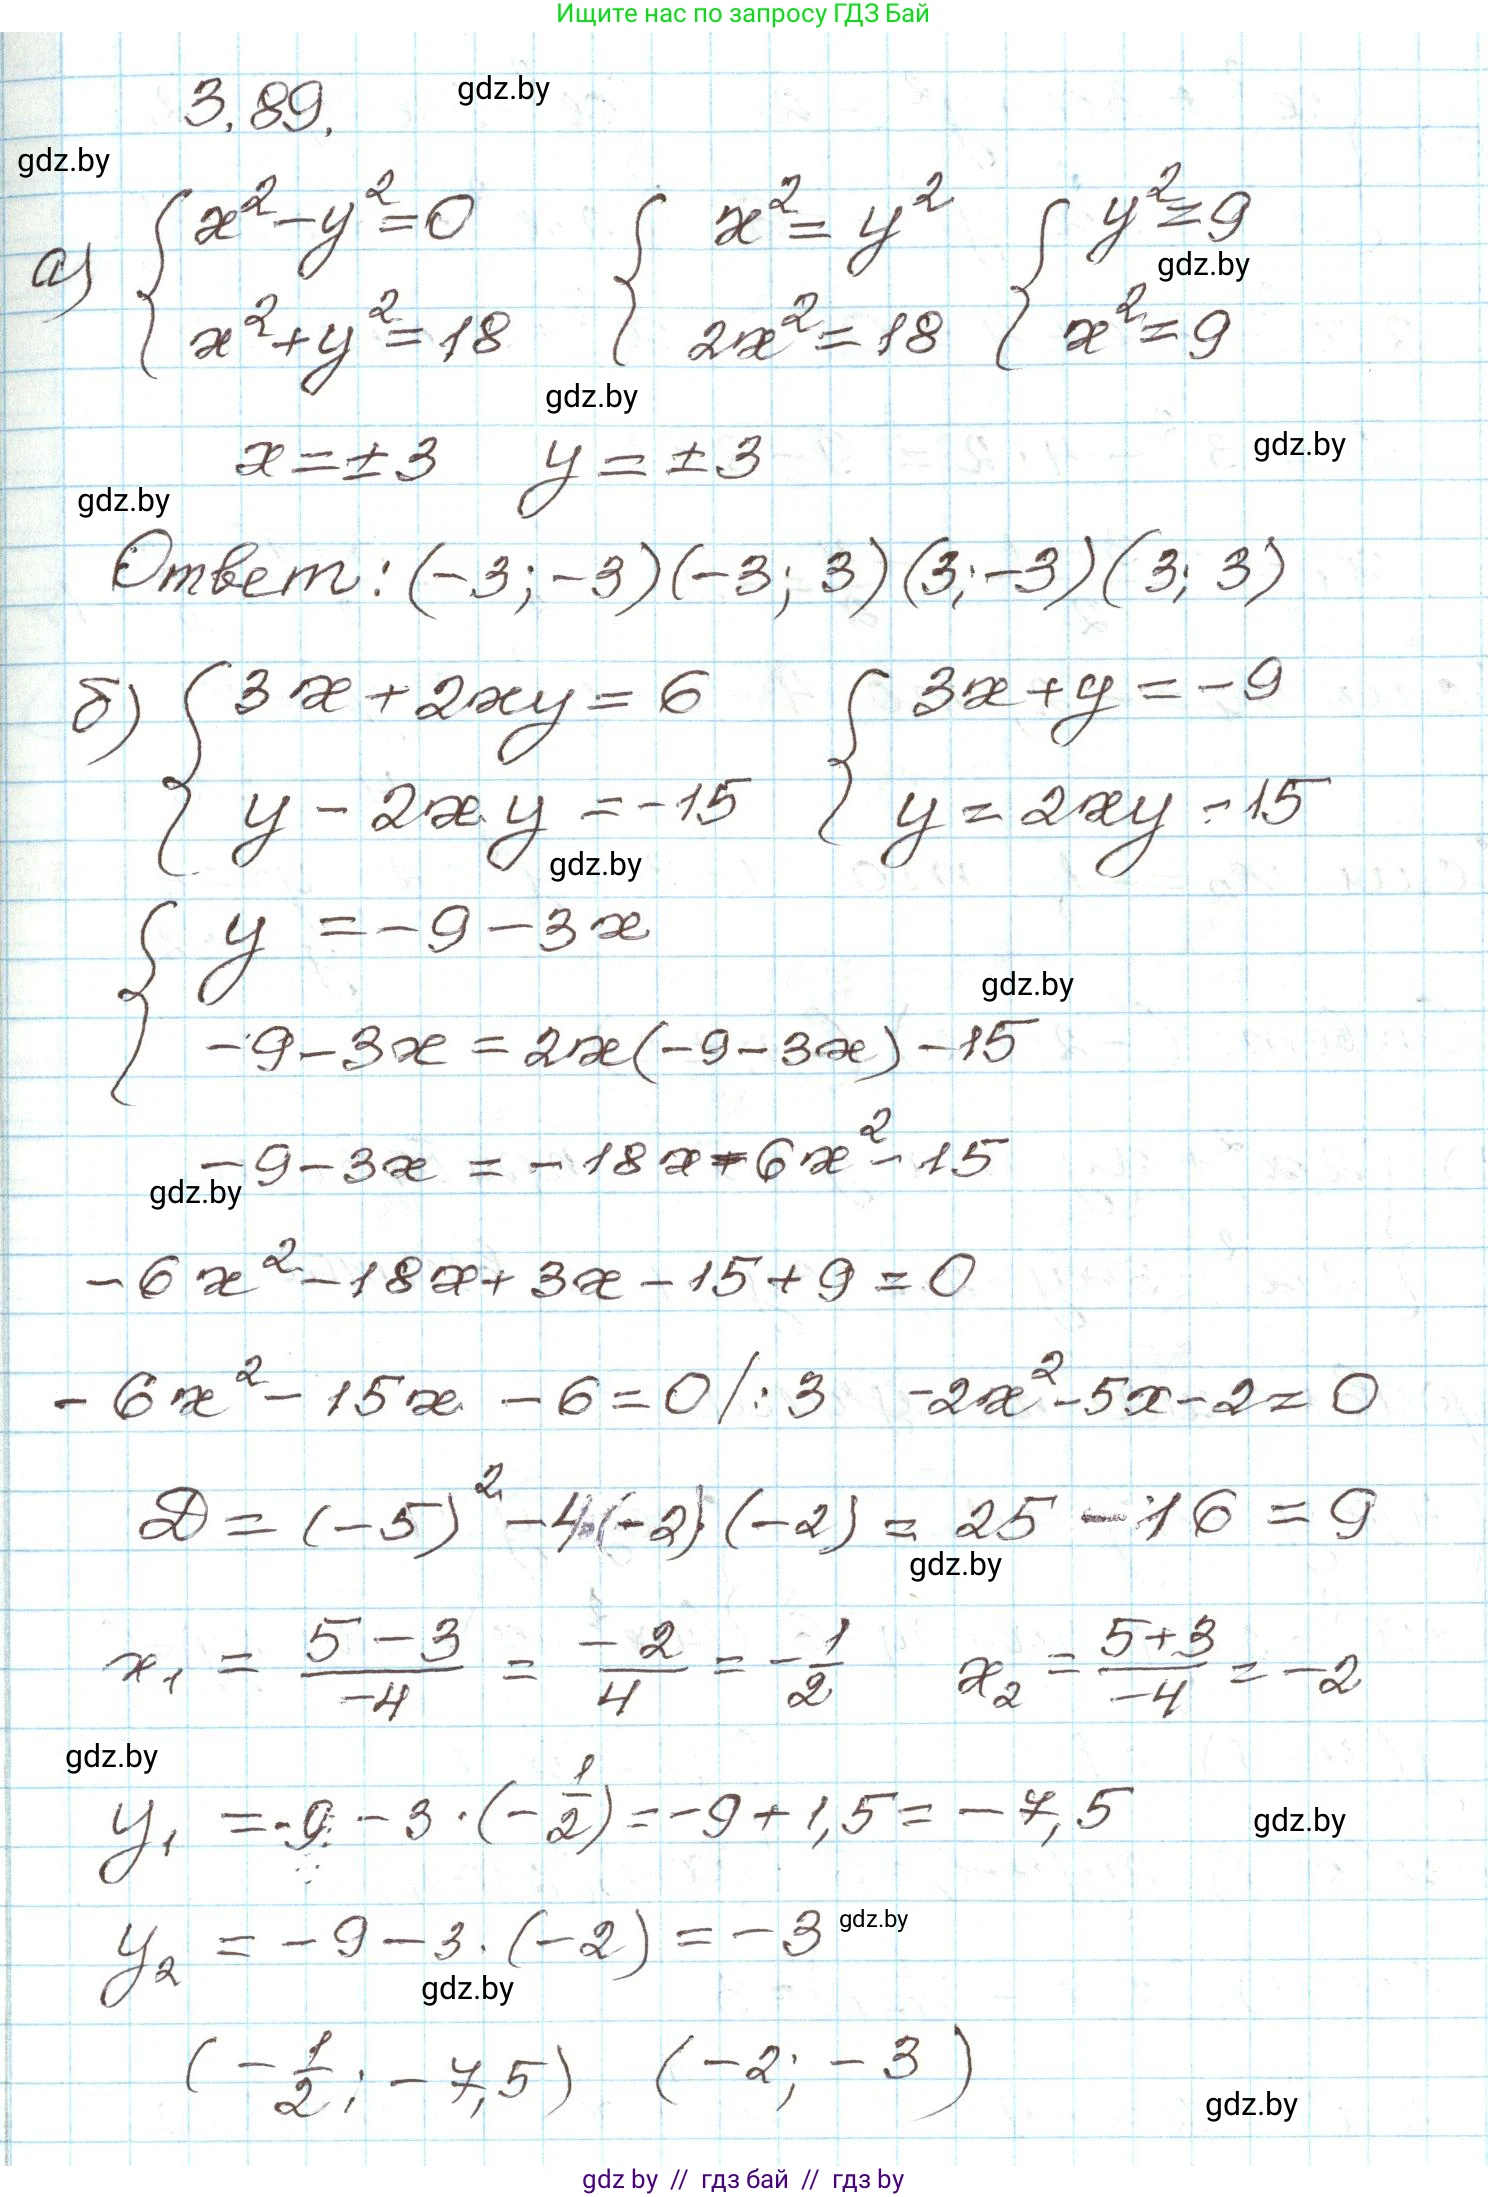 Ищите нас по запросу ГДЗ Бай
3.89.
gdz.by
gdz.by
а) { x² - y² = 0 { x² = y² { y² = 9
gdz.by
x² + y² = 18 2x² = 18 x² = 9
gdz.by
x = ± 3 y = ± 3
gdz.by
gdz.by
Ответ: (-3; -3) (-3; 3) (3; -3) (3; 3)
б) { 3x + 2xy = 6 { 3x + y = -9
y - 2xy = -15 y = 2xy - 15
gdz.by
{ y = -9 - 3x
gdz.by
-9 - 3x = 2x(-9 - 3x) - 15
-9 - 3x = -18x - 6x² - 15
gdz.by
-6x² - 18x + 3x - 15 + 9 = 0
-6x² - 15x - 6 = 0 /: 3 -2x² - 5x - 2 = 0
D = (-5)² - 4·(-2)·(-2) = 25 - 16 = 9
gdz.by
x₁ = (5 - 3)/(-4) = (-2)/4 = -1/2 x₂ = (5+3)/(-4) = -2
gdz.by
y₁ = -9 - 3 · (-1/2) = -9 + 1,5 = -7,5
gdz.by
y₂ = -9 - 3 · (-2) = -3
gdz.by
gdz.by
(-1/2; -7,5) (-2; -3)
gdz.by
gdz by // гдз бай // гдз by